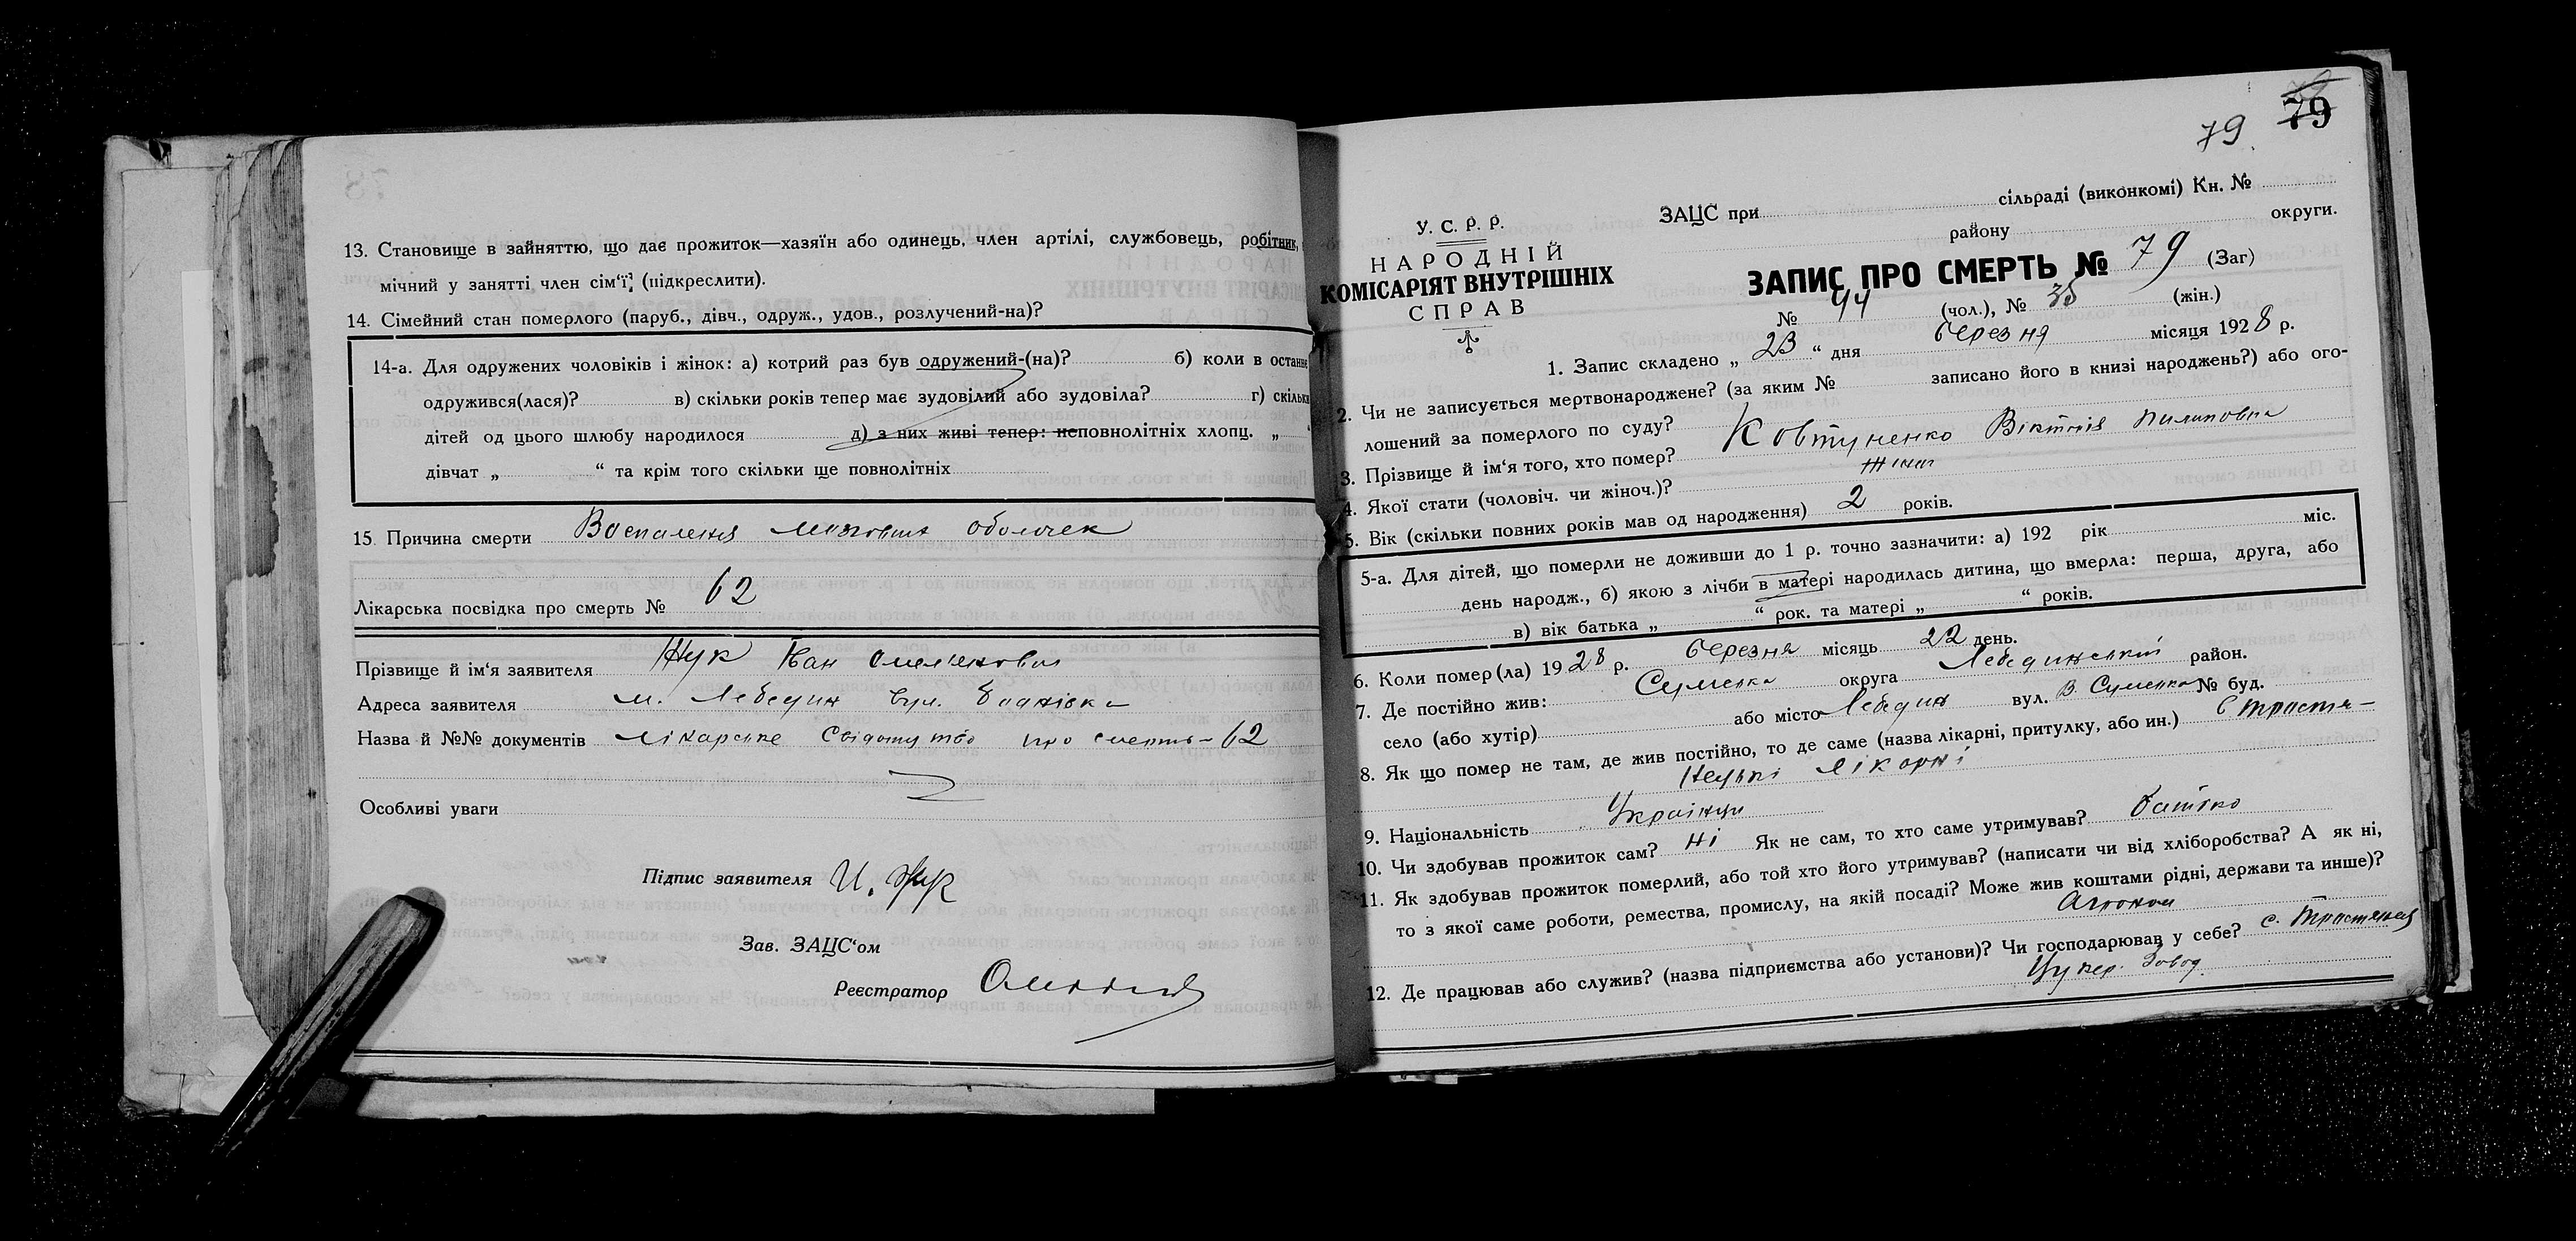 13. Становище в зайняттю, що дає прожиток—хазяїн або одинець, член артілі, службовець, робітник,
мічний у занятті член сім'ї, (підкреслити).
14. Сімейний стан померлого (паруб., дівч., одруж., удов., розлучений-на)?
14-а. Для одружених чоловіків і жінок: а) котрий раз був одружений-(на)? б) коли в останнє
одружився(лася)? в) скільки років тепер має зудовілий або зудовіла? г) скільки
дітей од цього шлюбу народилося д) з них живі тепер: неповнолітніх хлопц. „ “
дівчат „ “ та крім того скільки ще повнолітніх
15. Причина смерти Воспаления мозговых оболочек
Лікарська посвідка про смерть № 62
Прізвище й ім'я заявителя Жук Іван Омелянович
Адреса заявителя м. Лебедин вул.
Назва й №№ документів лікарське Свідотутво про смерть – 62
Особливі уваги
Підпис заявителя И. Жук
Зав. ЗАЦС'ом
Реєстратор
79
79.
У. С. Р. Р.
НАРОДНІЙ
КОМІСАРІЯТ ВНУТРІШНІХ
СПРАВ
ЗАЦС при сільраді (виконкомі) Кн. №
району округи.
ЗАПИС ПРО СМЕРТЬ № 79 (Заг)
№ 44 (чол.), № 35 (жін.)
1. Запис складено „ 23 “ дня березня місяця 1928 р.
2. Чи не записується мертвонароджене? (за яким № записано його в книзі народжень?) або ого-
лошений за померлого по суду?
3. Прізвище й ім'я того, хто помер? Ковтуненко Вікторія Пилиповна
4. Якої стати (чоловіч. чи жіноч.)? жіноч
5. Вік (скільки повних років мав од народження) 2 років.
5-а. Для дітей, що померли не доживши до 1 р. точно зазначити: а) 192 рік міс.
день народж., б) якою з лічби в матері народилась дитина, що вмерла: перша, друга, або
в) вік батька „ “ рок. та матері „ “ років.
6. Коли помер(ла) 1928 р. березня місяць 22 день.
7. Де постійно жив: Сумська округа Лебединський район.
село (або хутір) або місто Лебедин вул. В. Сумська № буд.
8. Як що помер не там, де жив постійно, то де саме (назва лікарні, притулку, або ин.) в тростя-
нецькі лікарні
9. Національність Українци
10. Чи здобував прожиток сам? Ні Як не сам, то хто саме утримував? батько
11. Як здобував прожиток померлий, або той хто його утримував? (написати чи від хліборобства? А як ні,
то з якої саме роботи, ремества, промислу, на якій посаді? Може жив коштами рідні, держави та инше)?
Агроном
12. Де працював або служив? (назва підприємства або установи)? Чи господарював у себе? с. Тростянець
Цукер. Завод